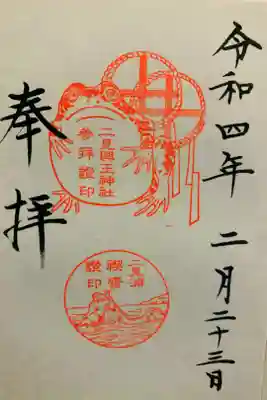 令和四年 二月二十三日
二見興玉神社
参拝證印
奉拝
二見浦
禊齋
證印